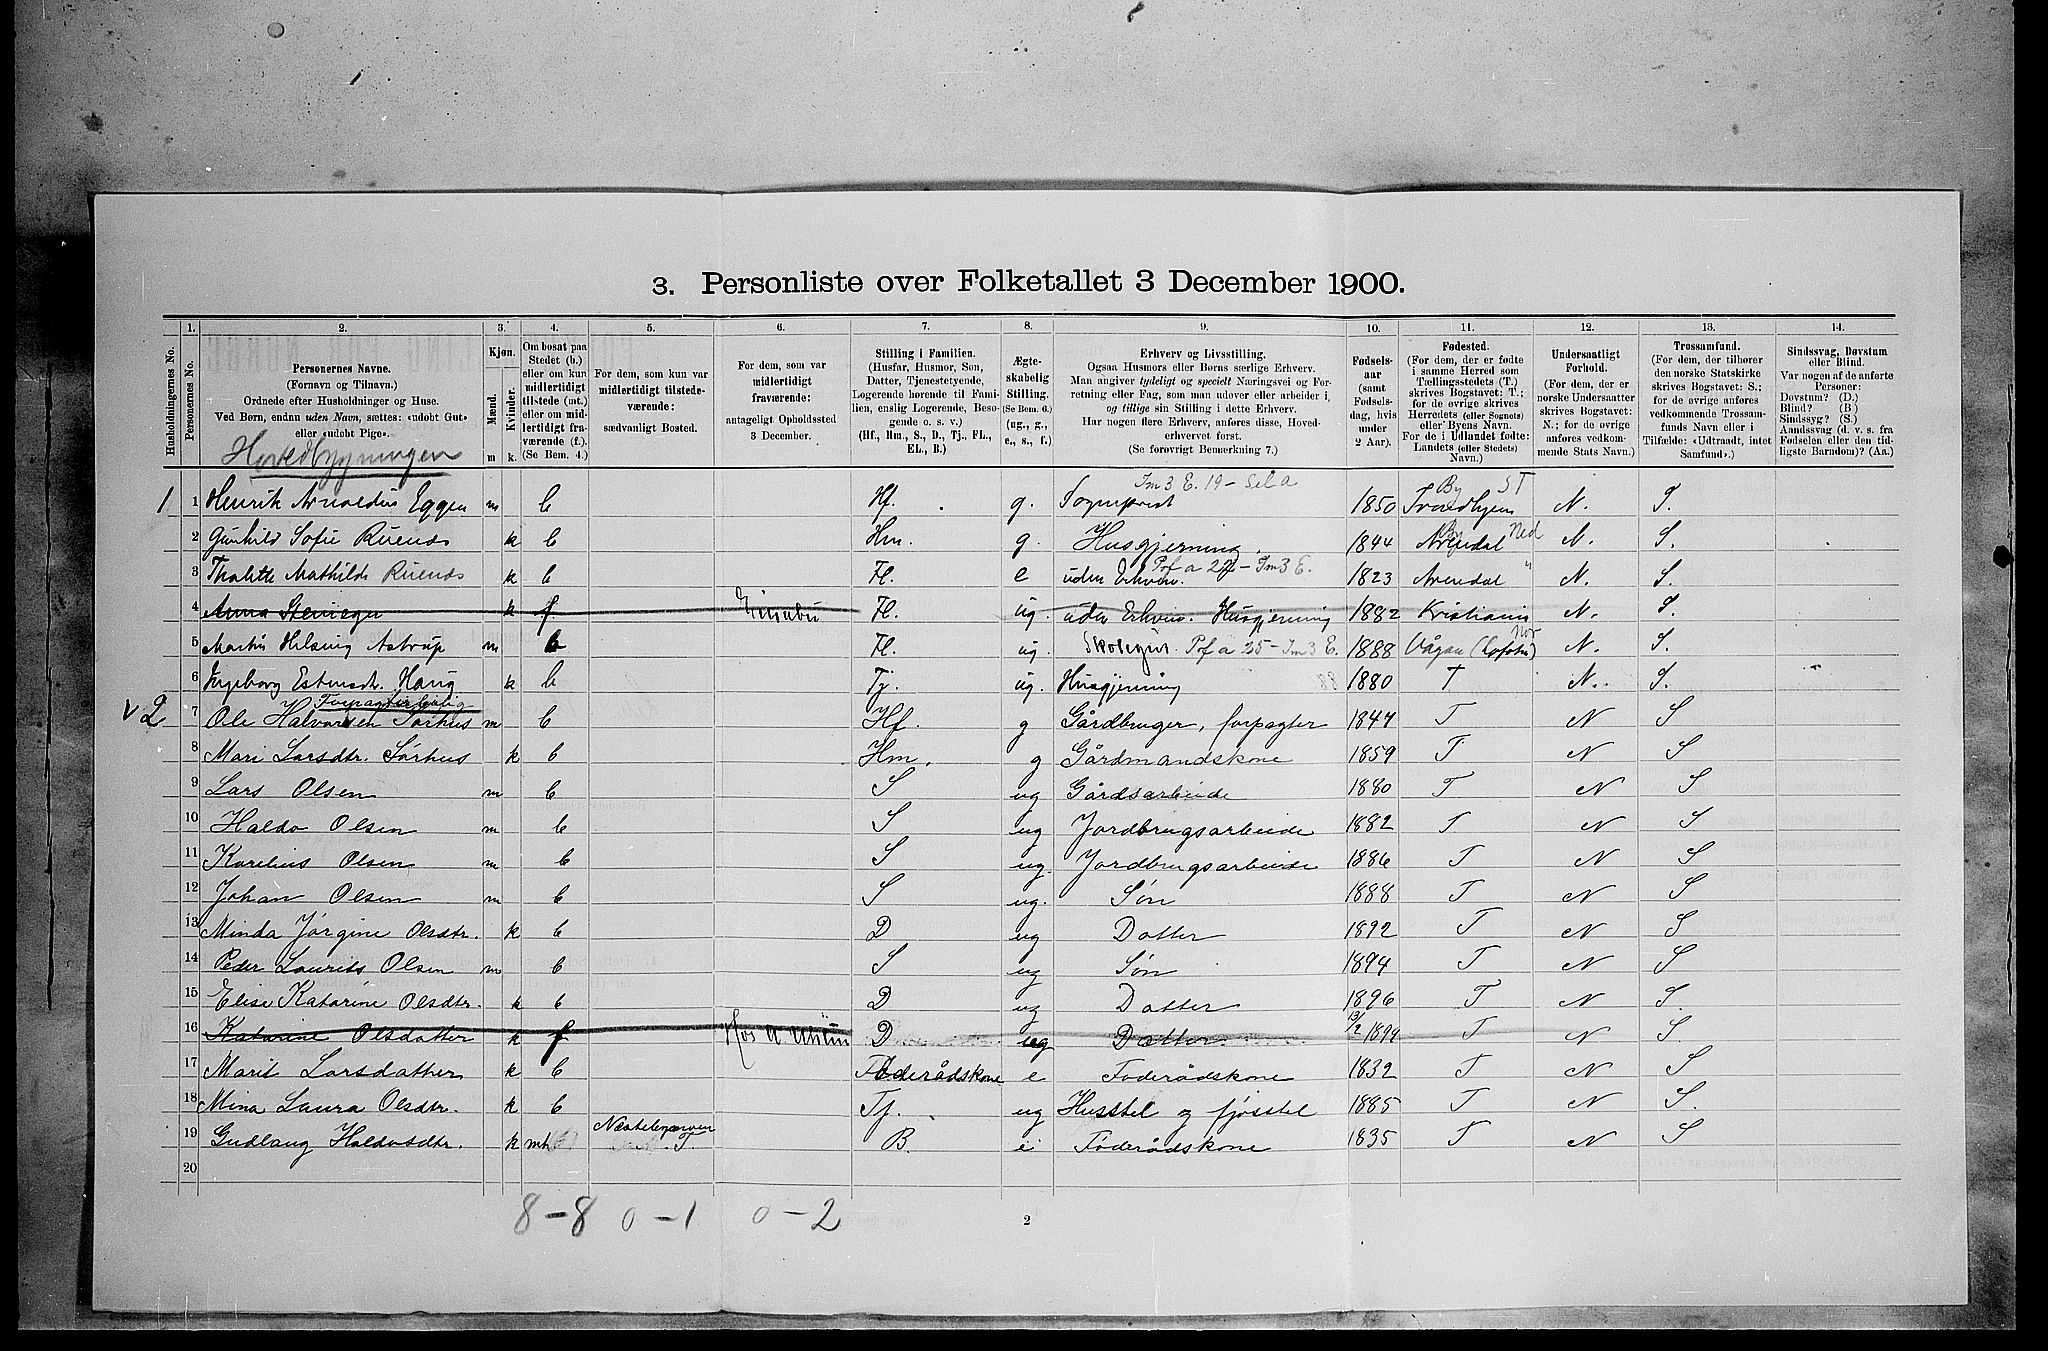 3. Personliste over Folketallet 3 December 1900.
Husholdningernes No.
1. Personernes No.
2. Personernes Navne. (Fornavn og Tilnavn.) Ordnede efter Husholdninger og Huse. Ved Børn, endnu uden Navn, sættes: «udøbt Gut» eller «udøbt Pige».
3. Kjøn. Mænd. m Kvinder. k.
4. Om bosat paa Stedet (b.) eller om kun midlertidigt tilstede (mt.) eller om midlertidigt fraværende (f.). (Se Bem. 4.)
5. For dem, som kun var midlertidigt tilstedeværende: sædvanligt Bosted.
6. For dem, som var midlertidigt fraværende: antageligt Opholdssted 3 December.
7. Stilling i Familien. (Husfar, Husmor, Søn, Datter, Tjenestetyende, Logerende hørende til Familien, enslig Logerende, Besøgende o. s. v.) (Hf., Hm., S., D., Tj., FL., EL., B.)
8. Ægteskabelig Stilling. (Se Bem. 6.) (ug., g., e., s., f.)
9. Erhverv og Livsstilling. Ogsaa Husmors eller Børns særlige Erhverv. Man angiver tydeligt og specielt Næringsvei og Forretning eller Fag, som man udøver eller arbeider i, og tillige sin Stilling i dette Erhverv. Har nogen flere Erhverv, anføres disse, Hovederhvervet først. (Se forøvrigt Bemærkning 7.)
10. Fødselsaar (samt Fødselsdag, hvis under 2 Aar).
11. Fødested. (For dem, der er fødte i samme Herred som Tællingsstedets (T.) skrives Bogstavet: T.; for de øvrige skrives Herredets (eller Sognets) eller Byens Navn. For de i Udlandet fødte: Landets (eller Stedets) Navn.)
12. Undersaatligt Forhold. (For dem, der er norske Undersaatter skrives Bogstavet: N.; for de øvrige anføres vedkommende Stats Navn.)
13. Trossamfund. (For dem, der tilhører den norske Statskirke skrives Bogstavet: S.; for de øvrige anføres vedkommende Trossamfunds Navn eller i Tilfælde: «Udtraadt, intet Samfund».)
14. Sindssvag, Døvstum eller Blind. Var nogen af de anførte Personer: Døvstum? (D.) Blind? (B.) Sindssyg? (S.) Aandssvag (d. v. s. fra Fødselen eller den tidligste Barndom)? (Aa.)
Hovedbygningen
1 1 Henrik Arnoldus Eggen m b Hf. g. Sogneprest Im3 E. 19 1850 Trondhjem By ST N. S.
2 Gunhild Sofie k b Hm. g. Husgjerning. 1844 Arendal By Ned N. S.
3 Thalette Mathilde k b Fl. e uden Erhverv. Im3 E. 1823 Arendal " N. S.
4 Anna k f Fl. ug. uden Erhverv. Husgjerning 1882 Kristiania N. S.
5 Martin Helsing Astrup m b Fl. ug. Skolegut. Pf a 25 - Im3 E. 1888 Vågan (Lofoten) Nor N. S.
6 Ingeborg Estensdr. Haug k b Tj. ug. Husgjerning 1880 T N. S.
Forpagterbolig
v 2 7 Ole Halvorsen Sørhus m b Hf. g Gårdbruger, forpagter 1844 T N S
8 Mari Larsdtr. Sørhus k b Hm. g Gårdmandskone 1859 T N S
9 Lars Olsen m b S ug Gårdsarbeide 1880 T N S
10 Haldo Olsen m b S ug Jordbrugsarbeide 1882 T N S
11 Karelius Olsen m b S ug. Jordbrugsarbeide 1886 T N S
12 Johan Olsen m b S ug. Søn 1888 T N S
13 Minda Jørgine Olsdtr. k b D ug Datter 1892 T N S
14 Peder Laurits Olsen m b S ug Søn 1894 T N S
15 Elise Katarine Olsdtr. k b D ug Datter 1896 T N S.
16 Katarine Olsdatter k f Hos D ug Datter. 13/2 1899 T N S.
17 Marit Larsdatter k b Føderådskone e Føderådskone 1832 T N S
18 Mina Laura Olsdtr. k b Tj. ug Husstel og fjøsstel 1885 T N S.
19 Gudlaug Haldosdtr. k mt T. B. e Føderådskone 1835 T N S
20
8-8 0-1 0-2
2